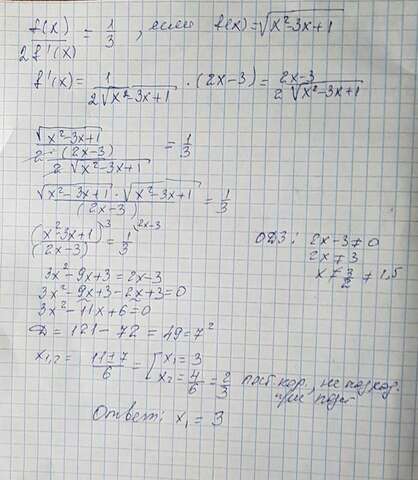 f(x)/2f'(x) = 1/3, если f(x)=√(x²-3x+1)
f'(x)= 1/(2√(x²-3x+1)) · (2x-3) = (2x-3)/(2√(x²-3x+1))
√(x²-3x+1)/(2·(2x-3)/(2√(x²-3x+1))) = 1/3
√(x²-3x+1)·√(x²-3x+1)/(2x-3) = 1/3
(x²-3x+1)^3/(2x-3) = 1^(2x-3)/3
ОДЗ: 2x-3≠0
2x≠3
x≠3/2≠1,5
3x²-9x+3=2x-3
3x²-9x+3-2x+3=0
3x²-11x+6=0
D=121-72=49=7²
x₁,₂= (11±7)/6 = [x₁=3
x₂=4/6=2/3 пост. кор., не подход.
Ответ: x₁=3